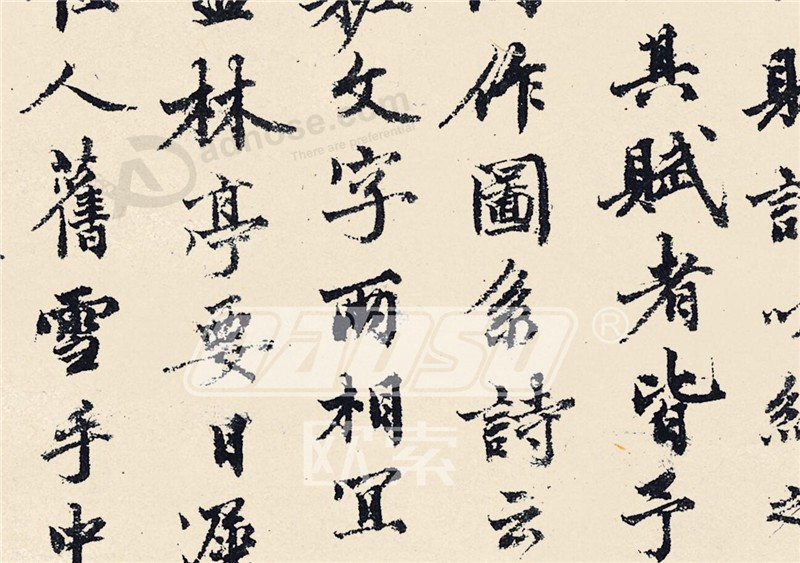 以之
其賦者皆予
作圖系詩云
文字兩相宜
林亭要日
人舊雪乎中
adhose.com
There are preferential
OAOSO®
欧索